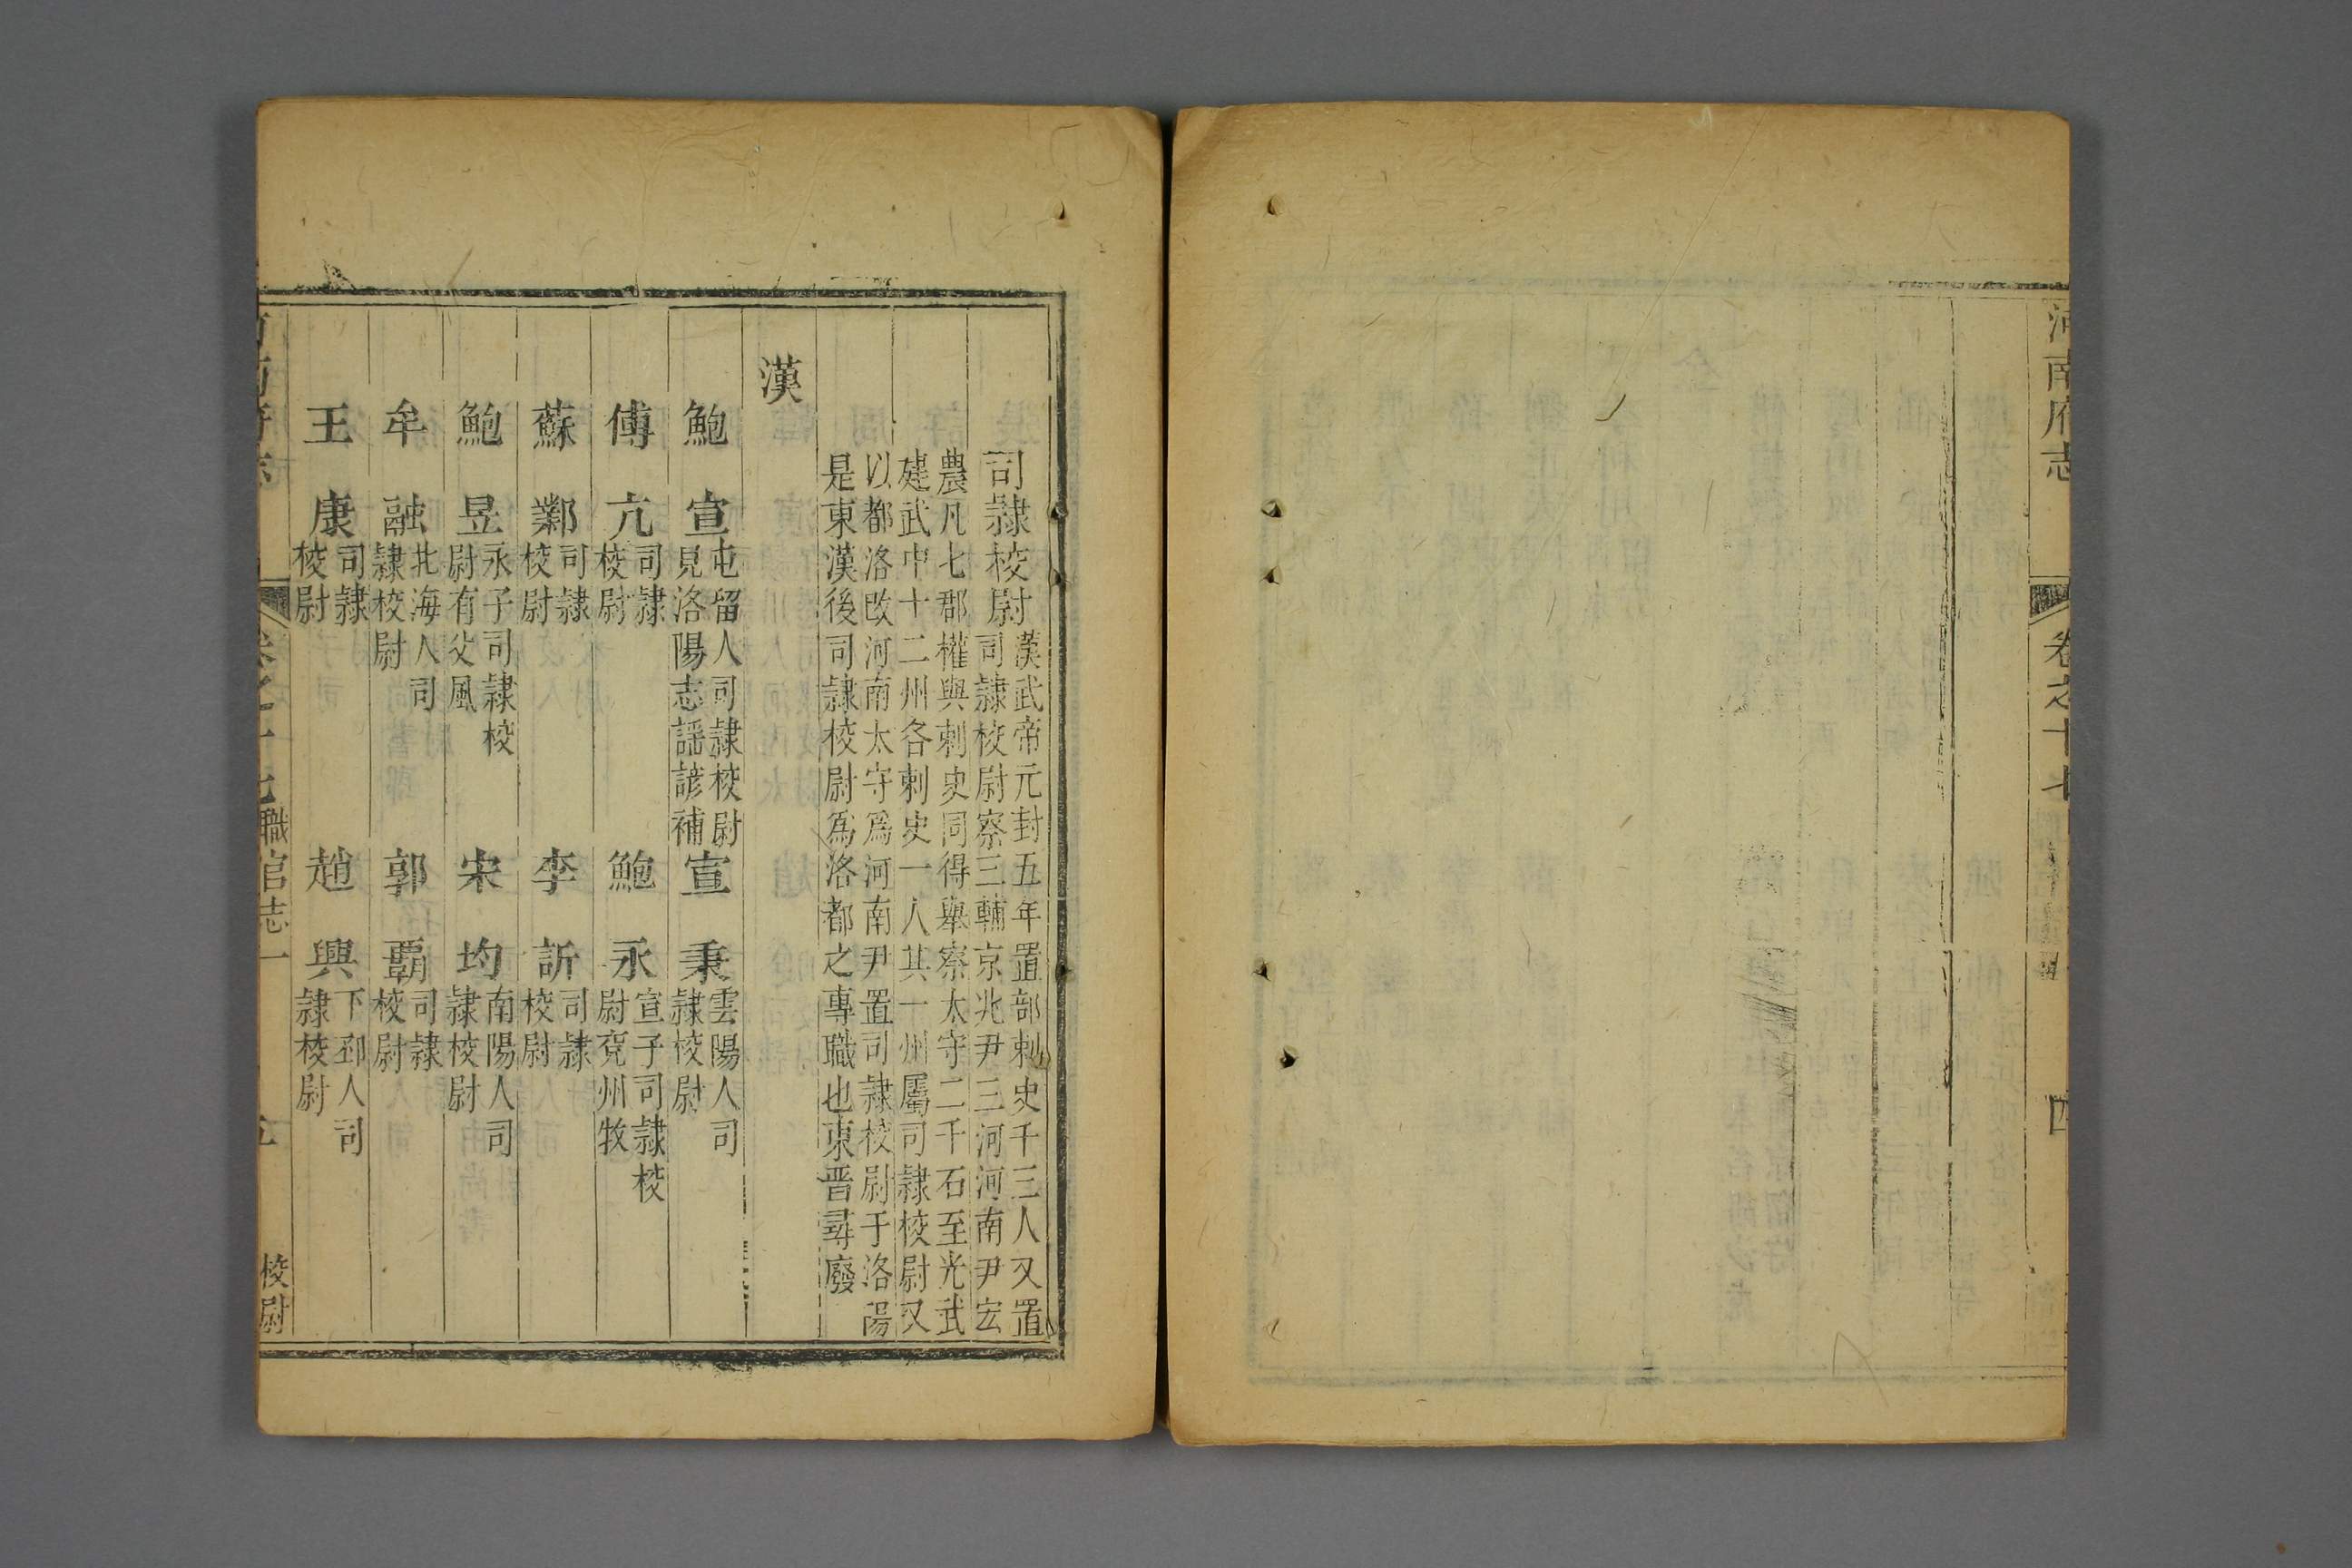 河南府志
卷之十七
四
司隸校尉
漢武帝元封五年置部刺史千三人又置
司隸校尉察三輔京兆尹三河河南尹宏
農凡七郡權與刺史同得舉察太守二千石至光武
建武中十二州各刺史一人其一州屬司隸校尉又
以都洛改河南太守爲河南尹置司隸校尉于洛陽
是東漢後司隸校尉爲洛都之專職也東晋尋廢
漢
鮑宣
屯留人司隸校尉
見洛陽志謡諺補
宣秉
雲陽人司
隸校尉
傅亢
司隸
校尉
鮑永
宣子司隸校
尉兖州牧
蘇鄴
司隸
校尉
李訢
司隸
校尉
鮑昱
永子司隸校
尉有父風
宋均
南陽人司
隸校尉
牟融
北海人司
隸校尉
郭霸
司隸
校尉
王康
司隸
校尉
趙興
下邳人司
隸校尉
河南府志
卷之十七
職官志一
五
校尉